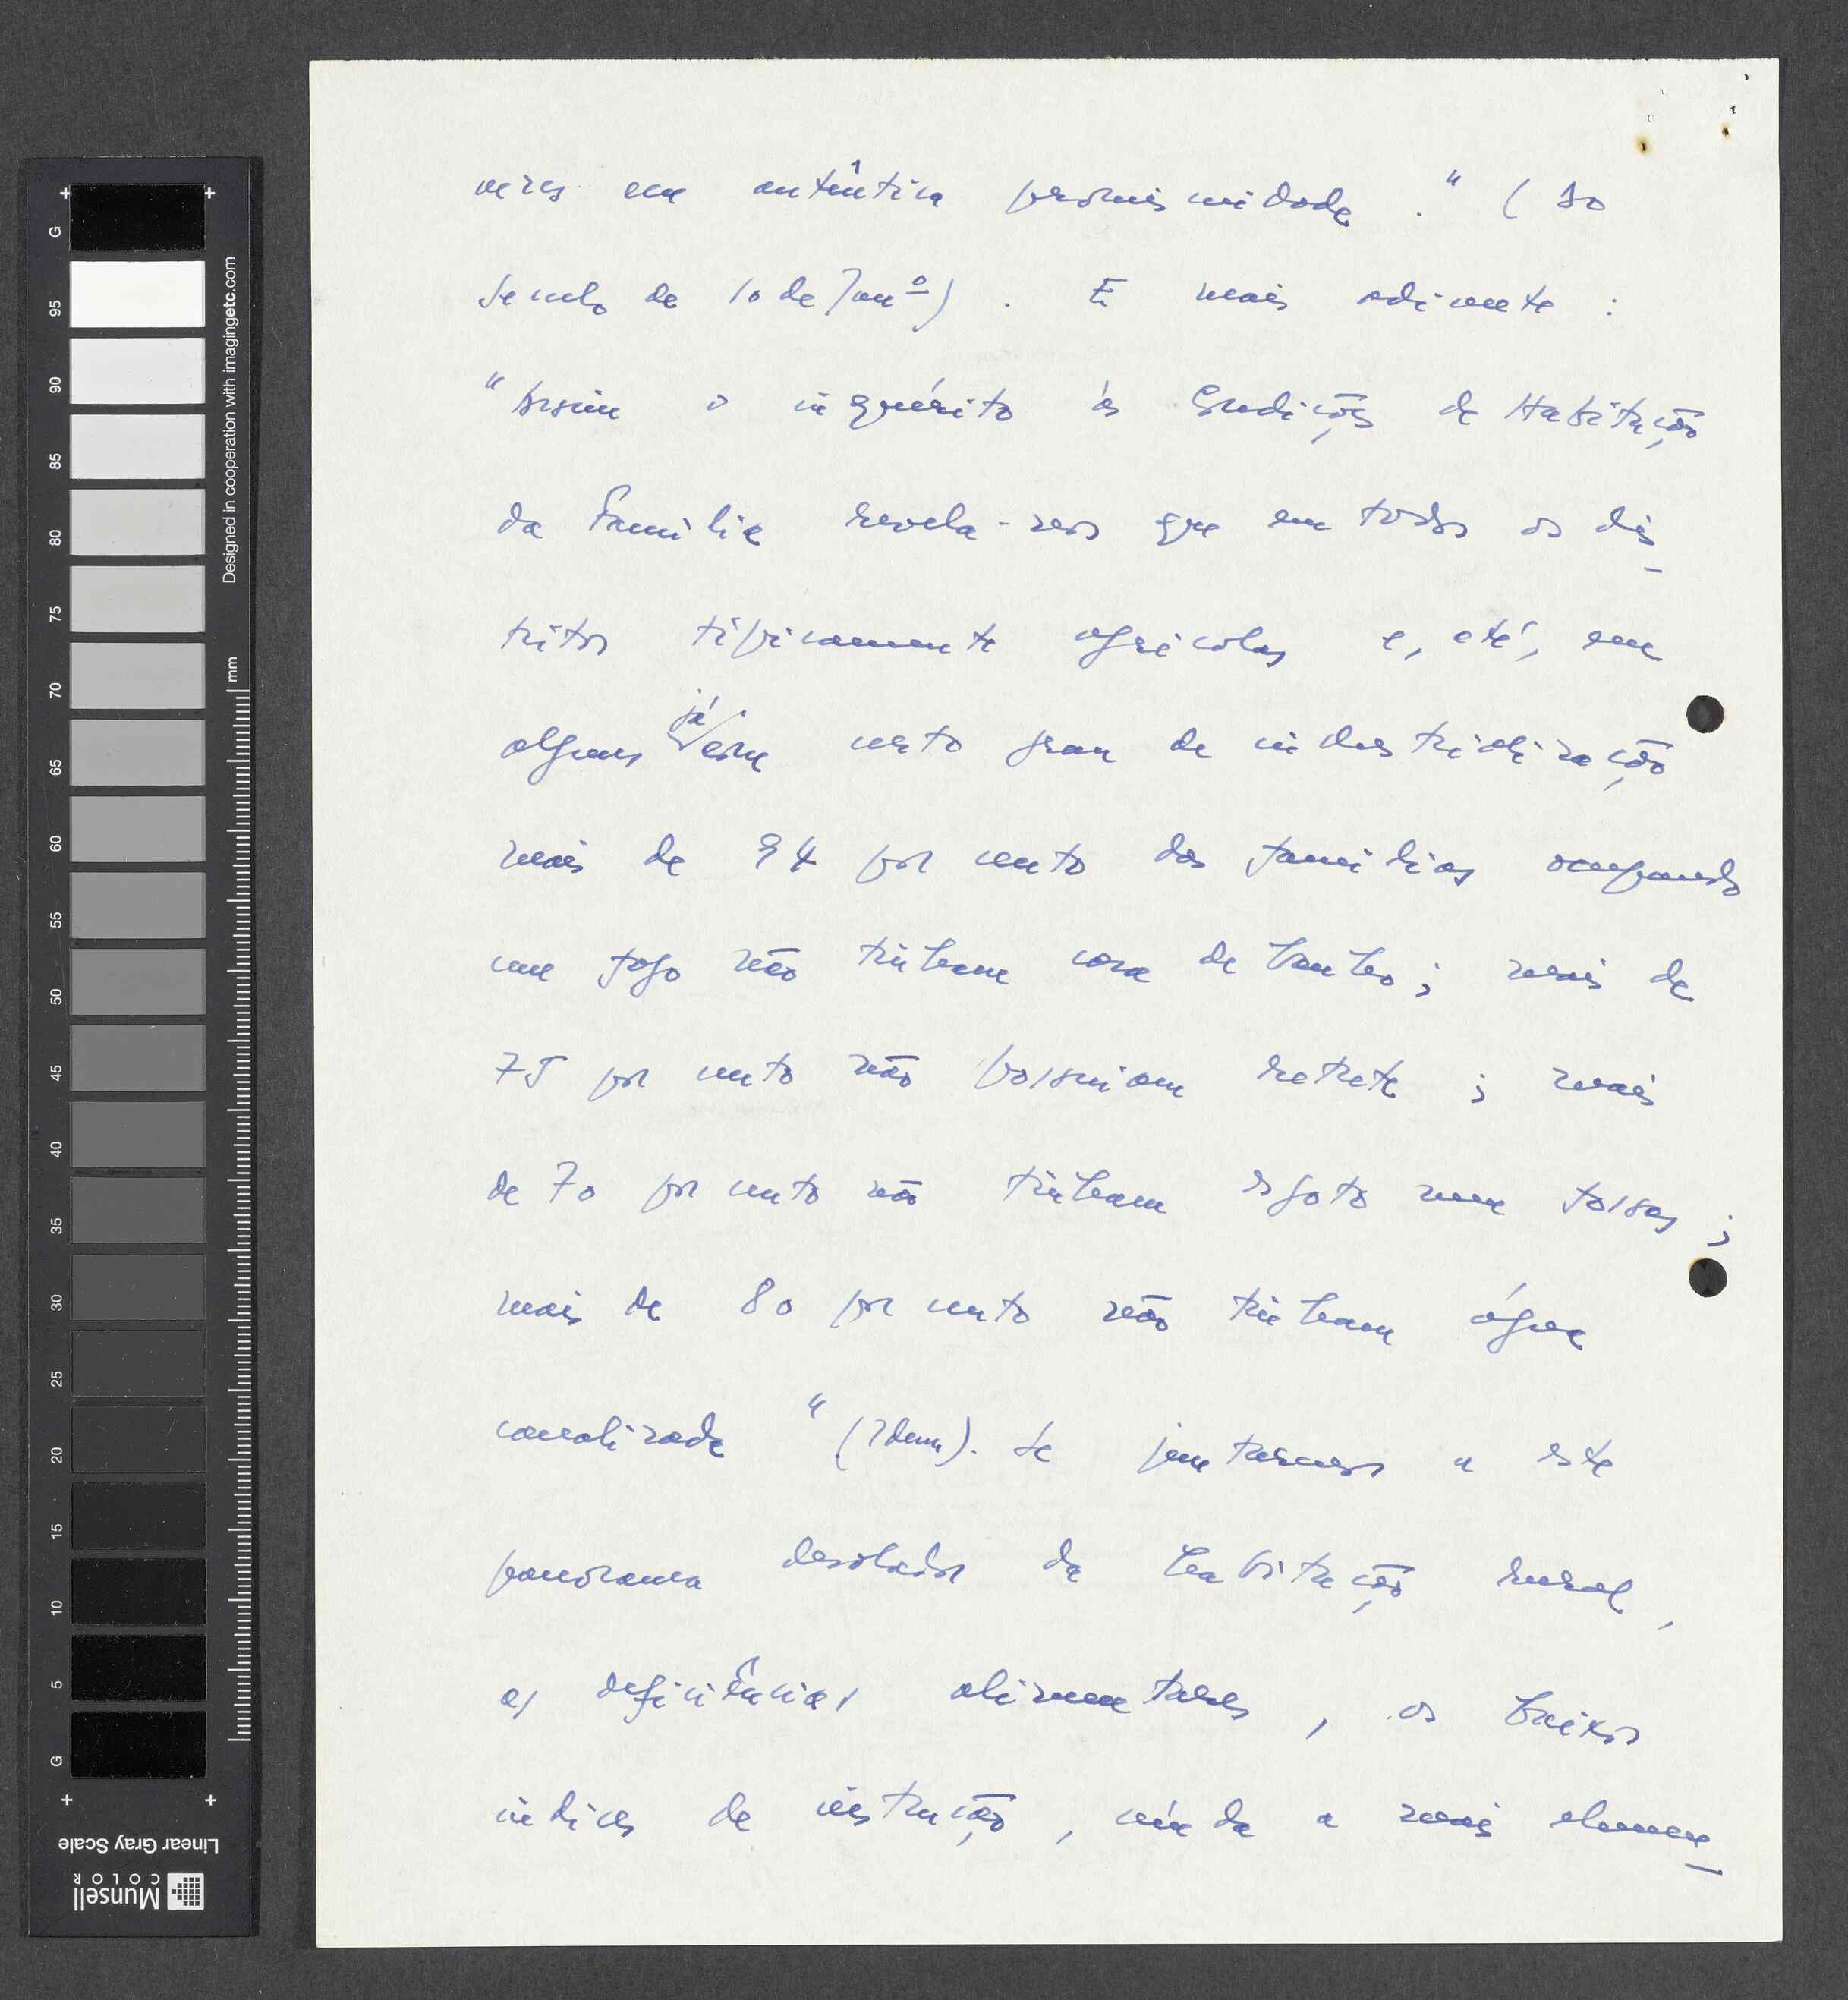 vezes em autêntica promiscuidade." (do
Seculo de 10 de Janº). E mais adiante:
"Assim o inquérito às Condições de Habitação
da Familia revela-nos que em todos os dis-
tritos tipicamente agricolas e, até, em
alguns já com certo grau de industrialização
mais de 94 por cento das familias ocupando
um fogo não tinham casa de banho; mais de
75 por cento não possuiam retrete; mais
de 70 por cento não tinham esgoto nem fossas;
mais de 80 por cento não tinham água
canalizada" (Idem). Se juntarmos a este
panorama desolador da habitação rural,
as deficiências alimentares, os baixos
indices de instrução, ainda a mais elemen-
G
95
90
85
80
75
70
65
60
55
50
45
40
35
30
25
20
15
10
5
G
mm
Designed in cooperation with imagingetc.com
Linear Gray Scale
Munsell
COLOR